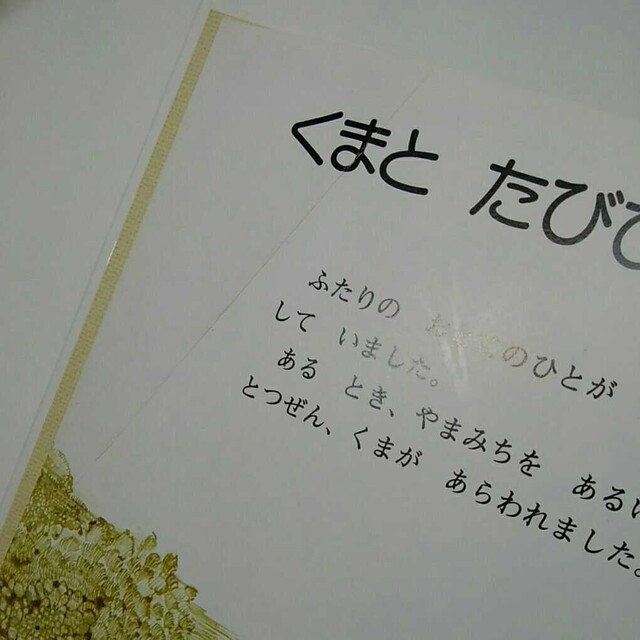 くまと たび
ふたりの おとこのひとが
して いました。
ある とき、やまみちを ある
とつぜん、くまが あらわれました。